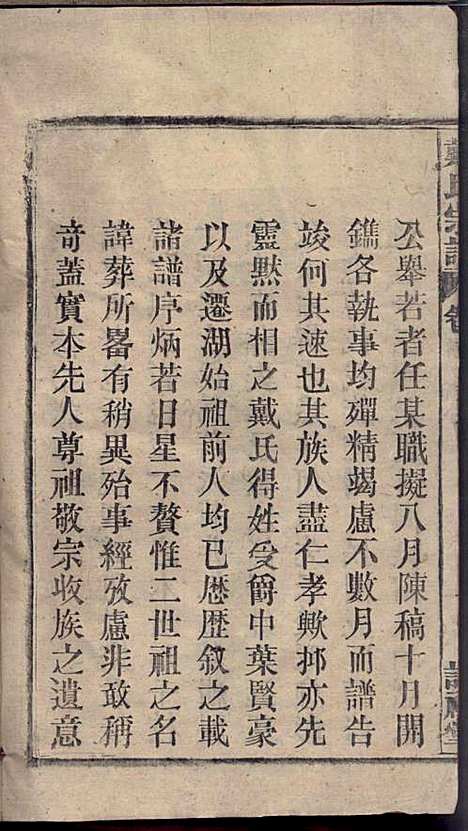 戴氏宗譜 卷
公舉若者任某職擬八月陳稿十月開
鐫各執事均殫精竭慮不數月而譜告
竣何其速也其族人盡仁孝歟抑亦先
靈默而相之戴氏得姓受爵中葉賢豪
以及遷湖始祖前人均已歷歷叙之載
諸譜序炳若日星不贅惟二世祖之名
諱葬所畧有稍異殆事經攷慮非敢稱
奇蓋實本先人尊祖敬宗收族之遺意